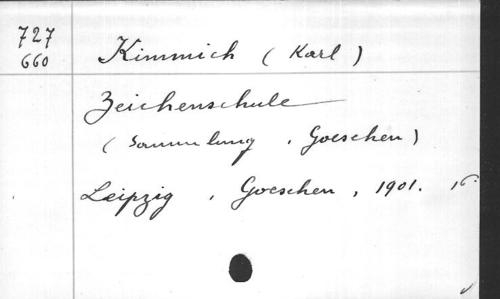 727
660
Kimmich (Karl)
Zeichenschule
(Sammlung, Goeschen)
Leipzig, Goeschen, 1901. 16°